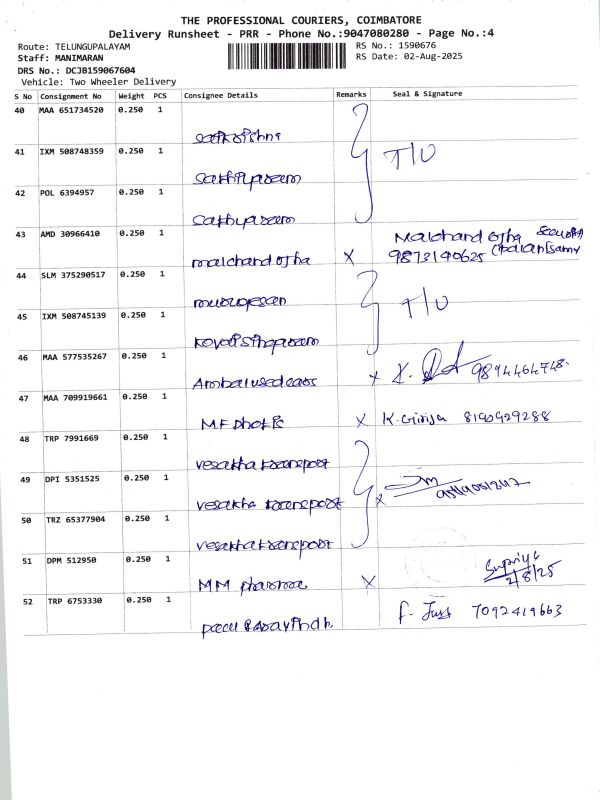 THE PROFESSIONAL COURIERS, COIMBATORE
Delivery Runsheet - PRR - Phone No.:9047080280 - Page No.:4
Route: TELUNGUPALAYAM RS No.: 1590676
Staff: MANIMARAN RS Date: 02-Aug-2025
DRS No.: DCJB159067604
Vehicle: Two Wheeler Delivery
S No Consignment No Weight PCS Consignee Details Remarks Seal & Signature
40 MAA 651734520 0.250 1
41 IXM 508748359 0.250 1 T/U
42 POL 6394957 0.250 1
43 AMD 30966410 0.250 1 Malchand Ojha Security
malchand ojha X 9873140625
44 SLM 375290517 0.250 1
murugesan T/U
45 IXM 508745139 0.250 1
46 MAA 577535267 0.250 1
Ambal used cars x 9894464748
47 MAA 709919661 0.250 1
X K. Girija 8190929288
48 TRP 7991669 0.250 1
vesakha transport
49 DPI 5351525 0.250 1
vesakha transport x
50 TRZ 65377904 0.250 1
vesakha transport
51 DPM 512950 0.250 1 Supriya
MM pharma X 2/8/25
52 TRP 6753330 0.250 1 7092419663